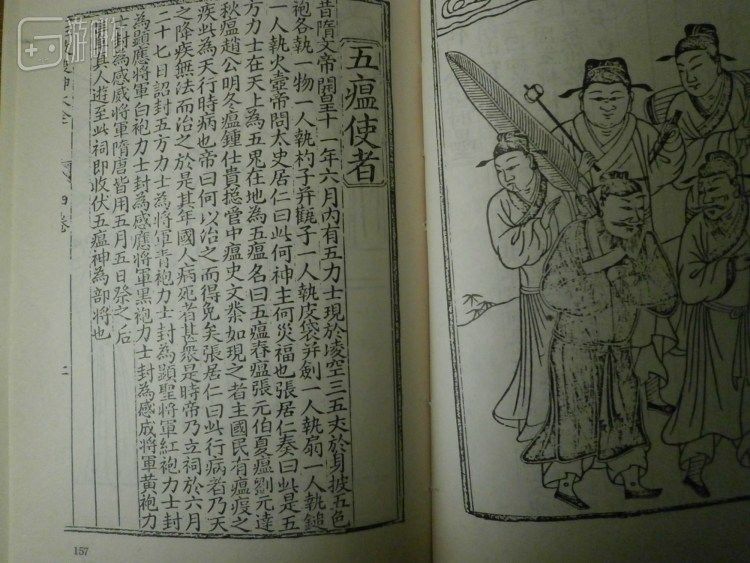 五瘟使者
昔隋文帝開皇十一年六月內有五力士現於凌空三五丈於身披五色
袍各執一物一人執杓子并瓘子一人執皮袋并劍一人執扇一人執鎚
一人執火壺帝問太史居仁曰此何神主何災福也張居仁奏曰此是五
方力士在天上為五鬼在地為五瘟名曰五瘟春瘟張元伯夏瘟劉元達
秋瘟趙公明冬瘟鍾仕貴捴管中瘟史文業如現之者主國民有瘟疫之
疾此為天行時病也帝曰何以治之而得免矣張居仁曰此行病者乃天
之降疾無法而治之於是其年國人病死者甚衆是時帝乃立祠於六月
二十七日詔封五方力士為將軍青袍力士封為顯聖將軍紅袍力士封
為顯應將軍白袍力士封為感應將軍黑袍力士封為感成將軍黃袍力
士封為感威將軍隋唐皆用五月五日祭之后
真人遊至此祠即收伏五瘟神為部將也
神大全 四卷
157